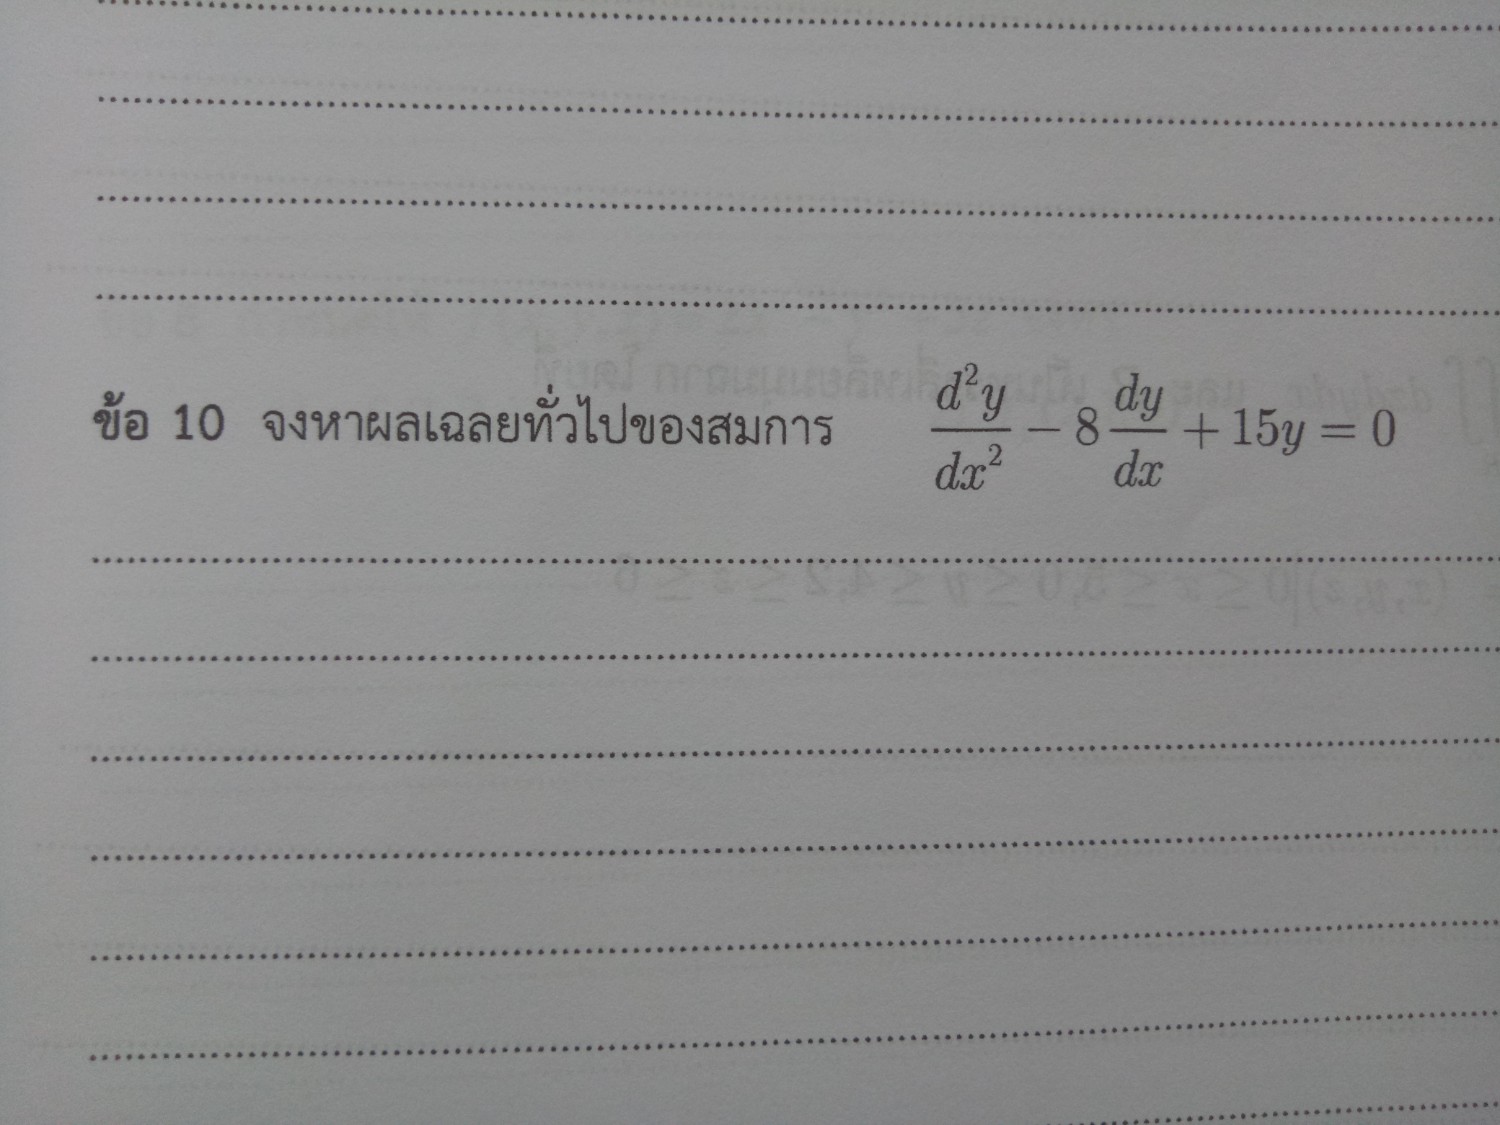 ข้อ 10 จงหาผลเฉลยทั่วไปของสมการ d²y/dx² − 8 dy/dx + 15y = 0